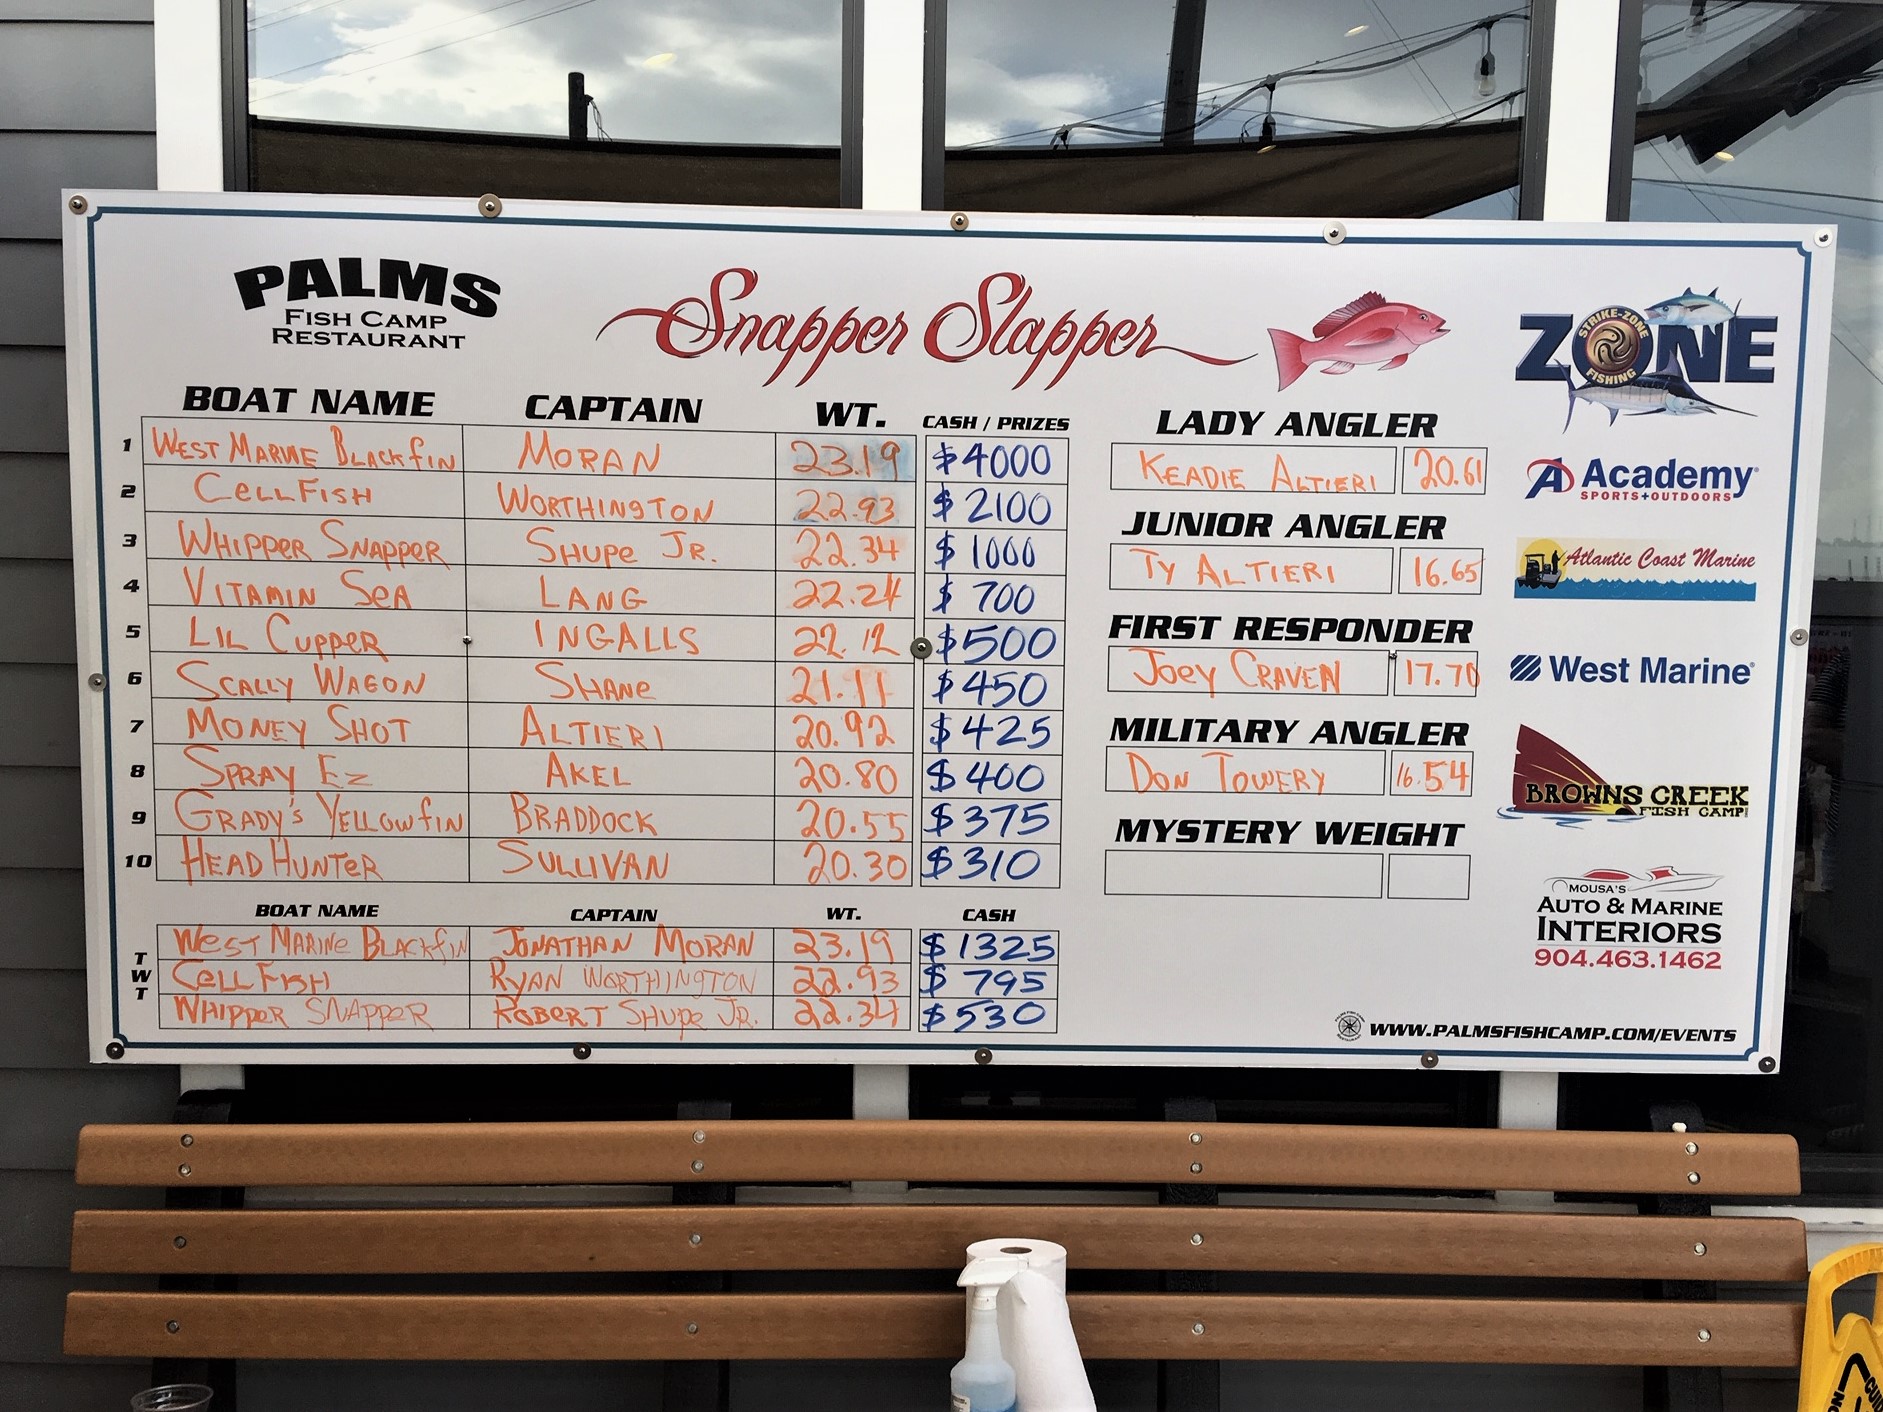 PALMS
FISH CAMP
RESTAURANT
Snapper Slapper
STRIKE-ZONE
ZONE
FISHING
BOAT NAME CAPTAIN WT. CASH / PRIZES
1 WEST MARINE BLACKFIN MORAN 23.19 $4000
2 CELLFISH WORTHINGTON 22.93 $2100
3 WHIPPER SNAPPER SHUPE JR. 22.34 $1000
4 VITAMIN SEA LANG 22.24 $700
5 LIL CUPPER INGALLS 22.12 $500
6 SCALLY WAGON SHANE 21.11 $450
7 MONEY SHOT ALTIERI 20.92 $425
8 SPRAY EZ AKEL 20.80 $400
9 GRADY'S YELLOWFIN BRADDOCK 20.55 $375
10 HEAD HUNTER SULLIVAN 20.30 $310
BOAT NAME CAPTAIN WT. CASH
TWT
WEST MARINE BLACKFIN JONATHAN MORAN 23.19 $1325
CELLFISH RYAN WORTHINGTON 22.93 $795
WHIPPER SNAPPER ROBERT SHUPE JR. 22.34 $530
LADY ANGLER
KEADIE ALTIERI 20.61
JUNIOR ANGLER
TY ALTIERI 16.65
FIRST RESPONDER
JOEY CRAVEN 17.70
MILITARY ANGLER
DON TOWERY 16.54
MYSTERY WEIGHT
Academy
SPORTS+OUTDOORS
Atlantic Coast Marine
West Marine
BROWNS CREEK
FISH CAMP
MOUSA'S
AUTO & MARINE
INTERIORS
904.463.1462
WWW.PALMSFISHCAMP.COM/EVENTS